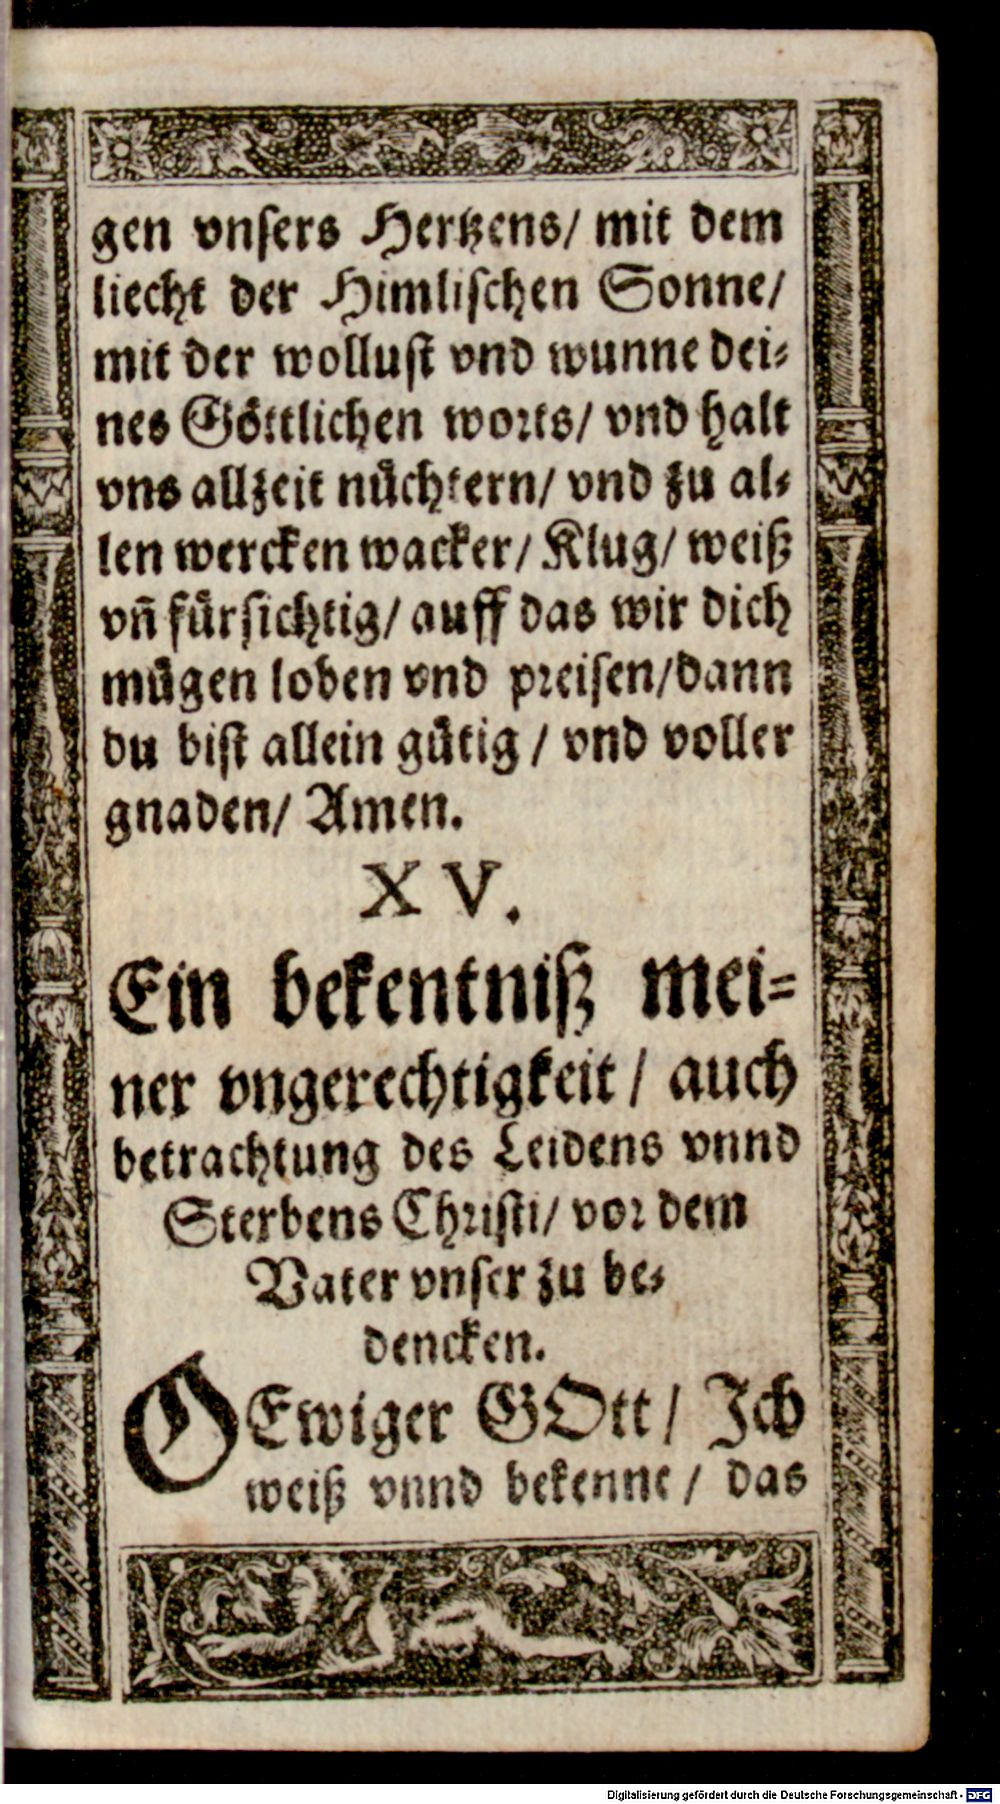 gen vnsers Hertzens/ mit dem
liecht der Himlischen Sonne/
mit der wollust vnd wunne dei⸗
nes Göttlichen worts/ vnd halt
vns allzeit nüchtern/ vnd zu al⸗
len wercken wacker/ Klug/ weiß
vñ fürsichtig/ auff das wir dich
mügen loben vnd preisen/dann
du bist allein gütig / vnd voller
gnaden/ Amen.
XV.
Ein bekentniß mei⸗
ner vngerechtigkeit / auch
betrachtung des Leidens vnnd
Sterbens Christi/ vor dem
Vater vnser zu be⸗
dencken.
O Ewiger GOtt / Ich
weiß vnnd bekenne / das
Digitalisierung gefördert durch die Deutsche Forschungsgemeinschaft - DFG